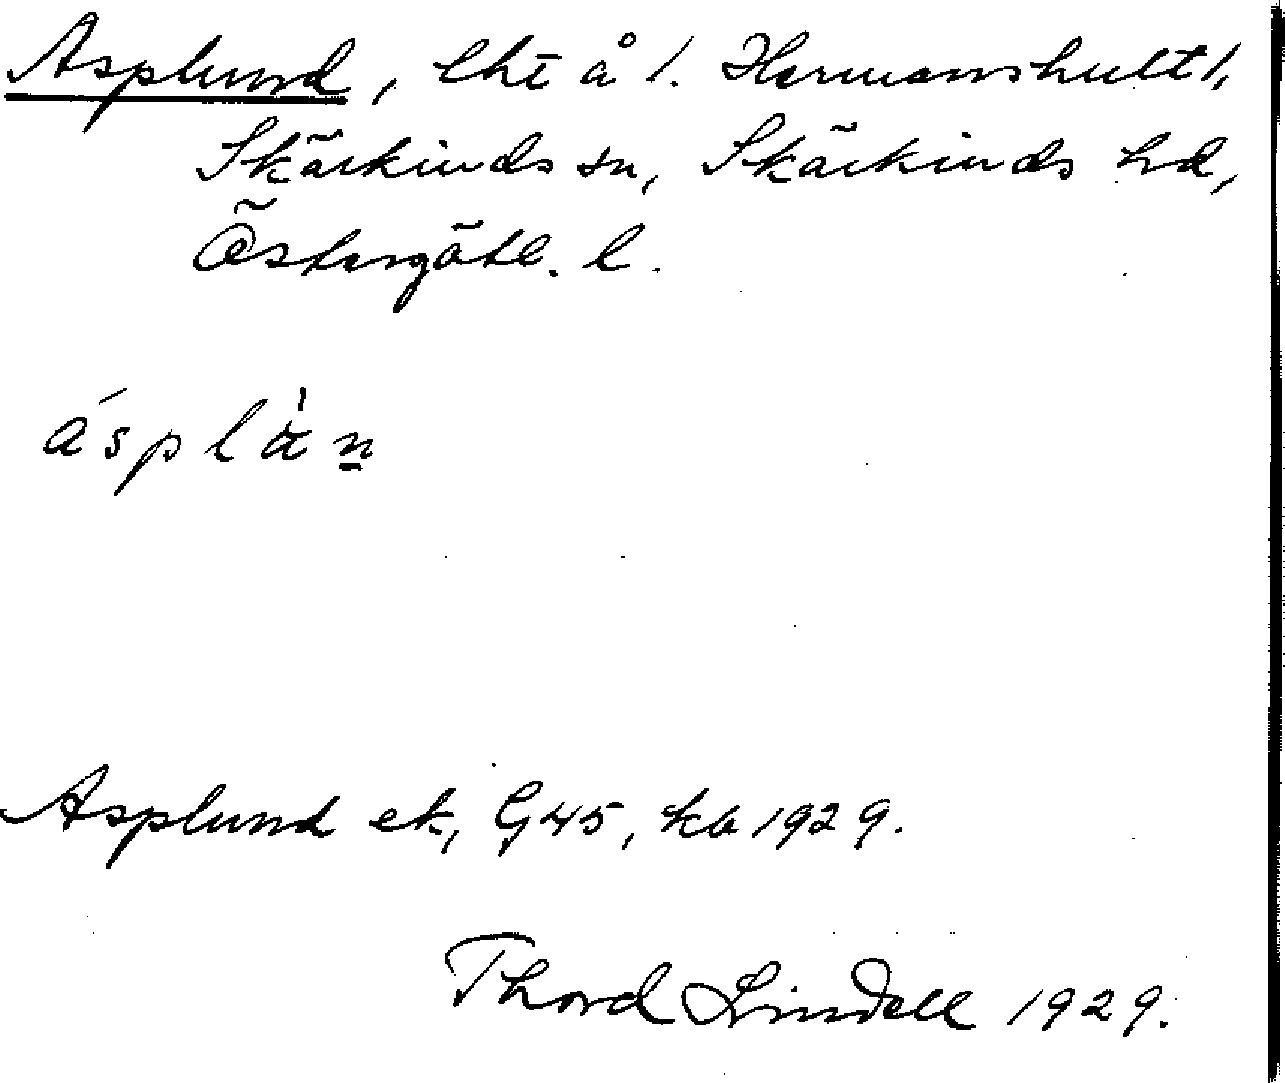 Asplund, lht å 1. Hermanshult 1,
Skärkinds sn, Skärkinds hd,
Östergötl. l.
ásplàn
Asplund ek, G45, kb 1929.
Thord Lindell 1929.